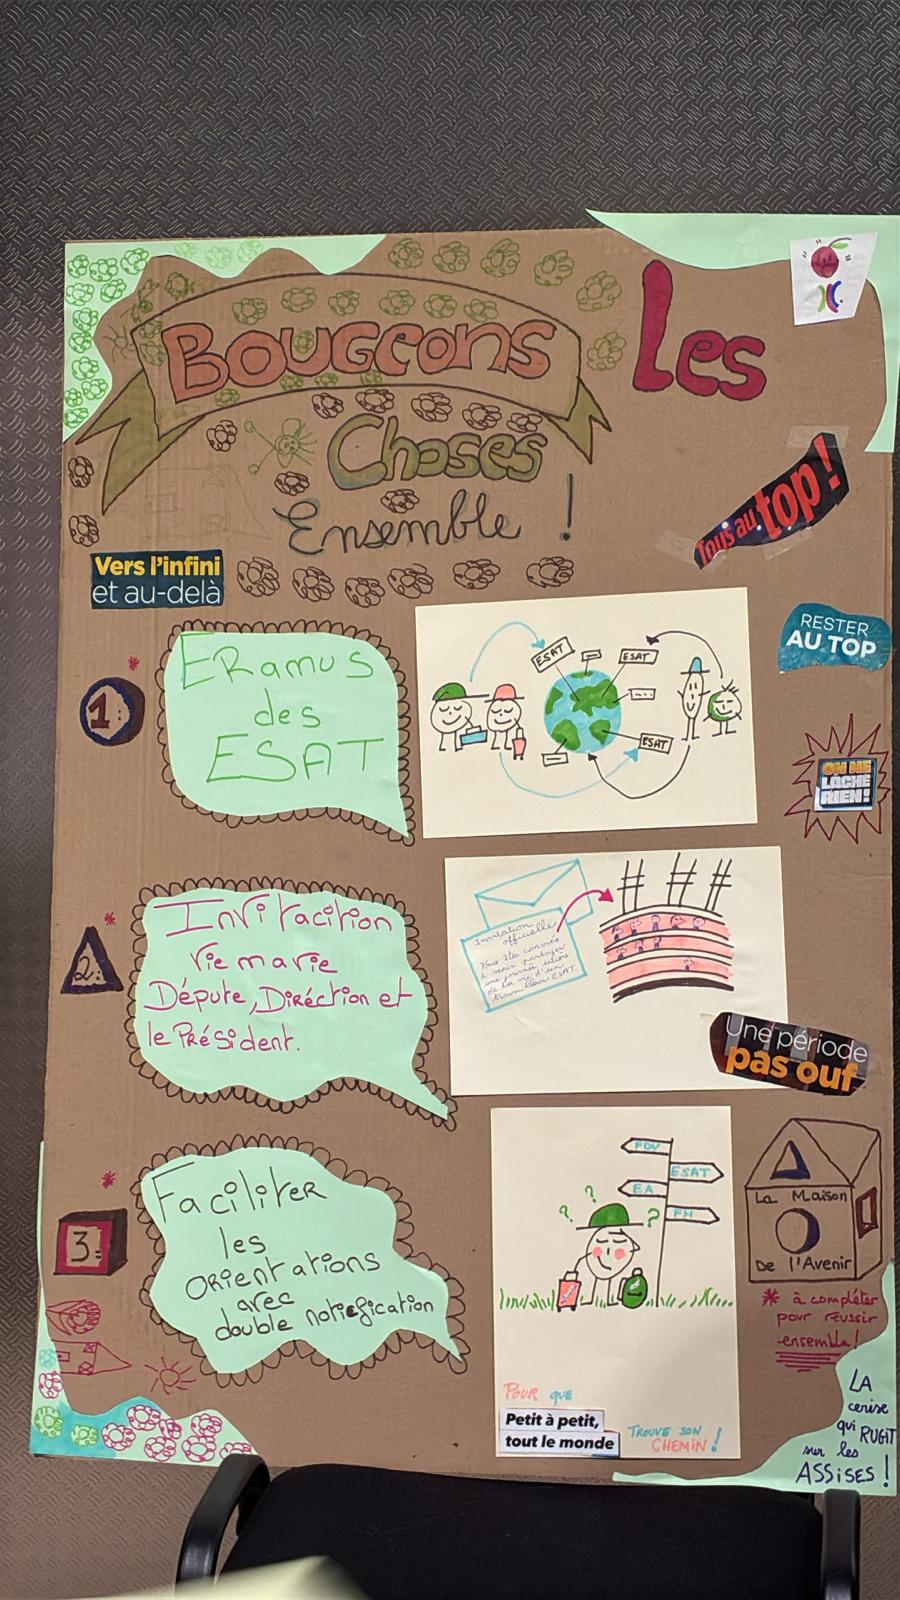 Bougeons Les
Choses
Ensemble !
Tous au top !
Vers l'infini
et au-delà
RESTER
AU TOP
1
ERamus
des
ESAT
ESAT
ESAT
....
ESAT
ON NE
LÂCHE
RIEN!
2
Invitacition
vie ma vie
Députe, Diréction et
le PRéSident.
Invitation
officielle
Vous êtes convié
à venir partager
une journée entière
de la vie d'un
travailleur ESAT.
Une période
pas ouf
3
FaciliteR
les
ORientations
avec
double notification
FDV
ESAT
EA
FH
? ? ?
La Maison
De l'Avenir
* à compléter
pour réussir
ensemble!
POUR QUE
Petit à petit,
tout le monde
TROUVE SON
CHEMIN !
LA
cerise
qui RUGIT
sur les
ASSISES !